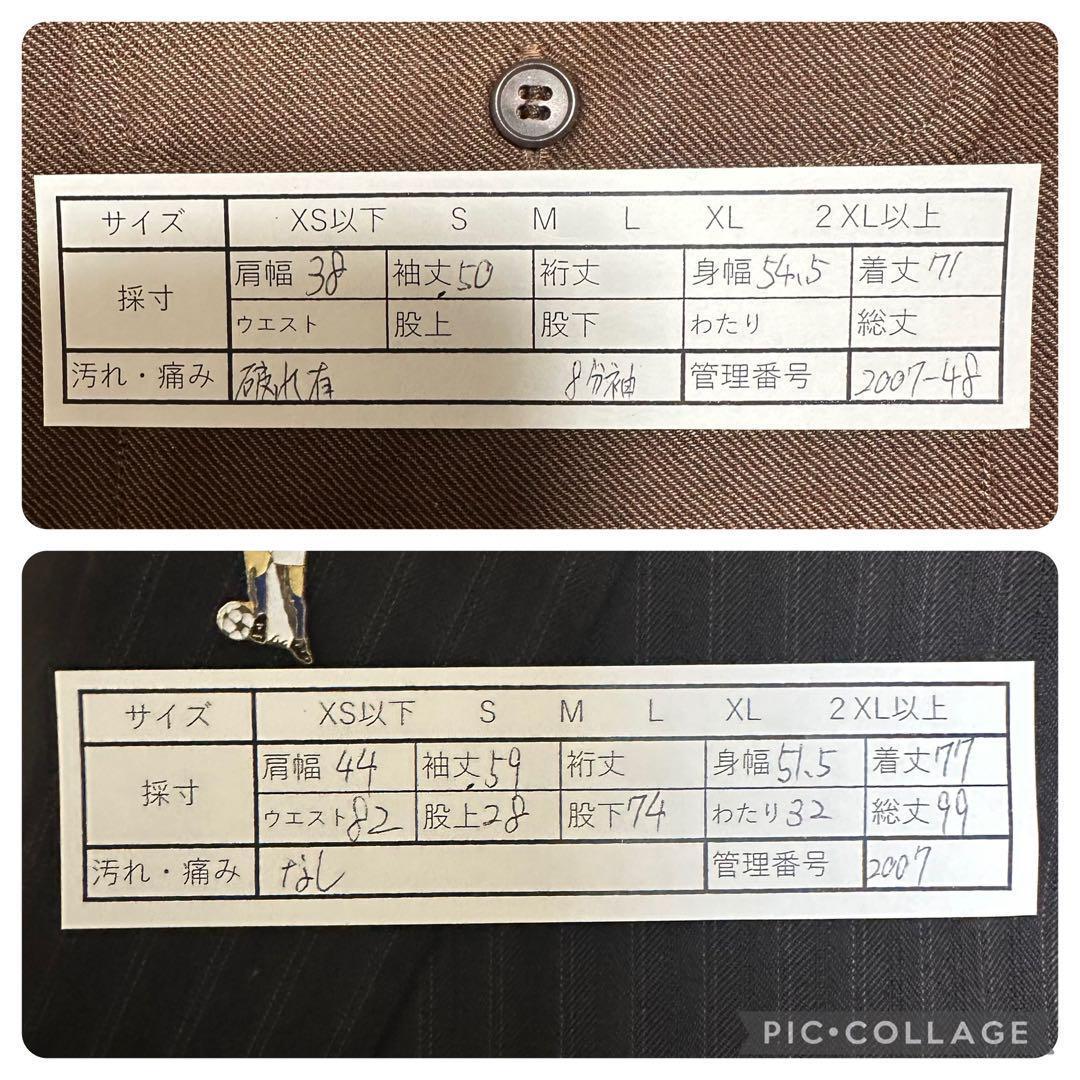 サイズ XS以下 S M L XL 2XL以上
採寸 肩幅 38 袖丈 50 裄丈 身幅 54.5 着丈 71
ウエスト 股上 股下 わたり 総丈
汚れ・痛み 破れ有 8分袖 管理番号 2007-48
サイズ XS以下 S M L XL 2XL以上
採寸 肩幅 44 袖丈 59 裄丈 身幅 51.5 着丈 77
ウエスト 82 股上 28 股下 74 わたり 32 総丈 99
汚れ・痛み なし 管理番号 2007
PIC•COLLAGE